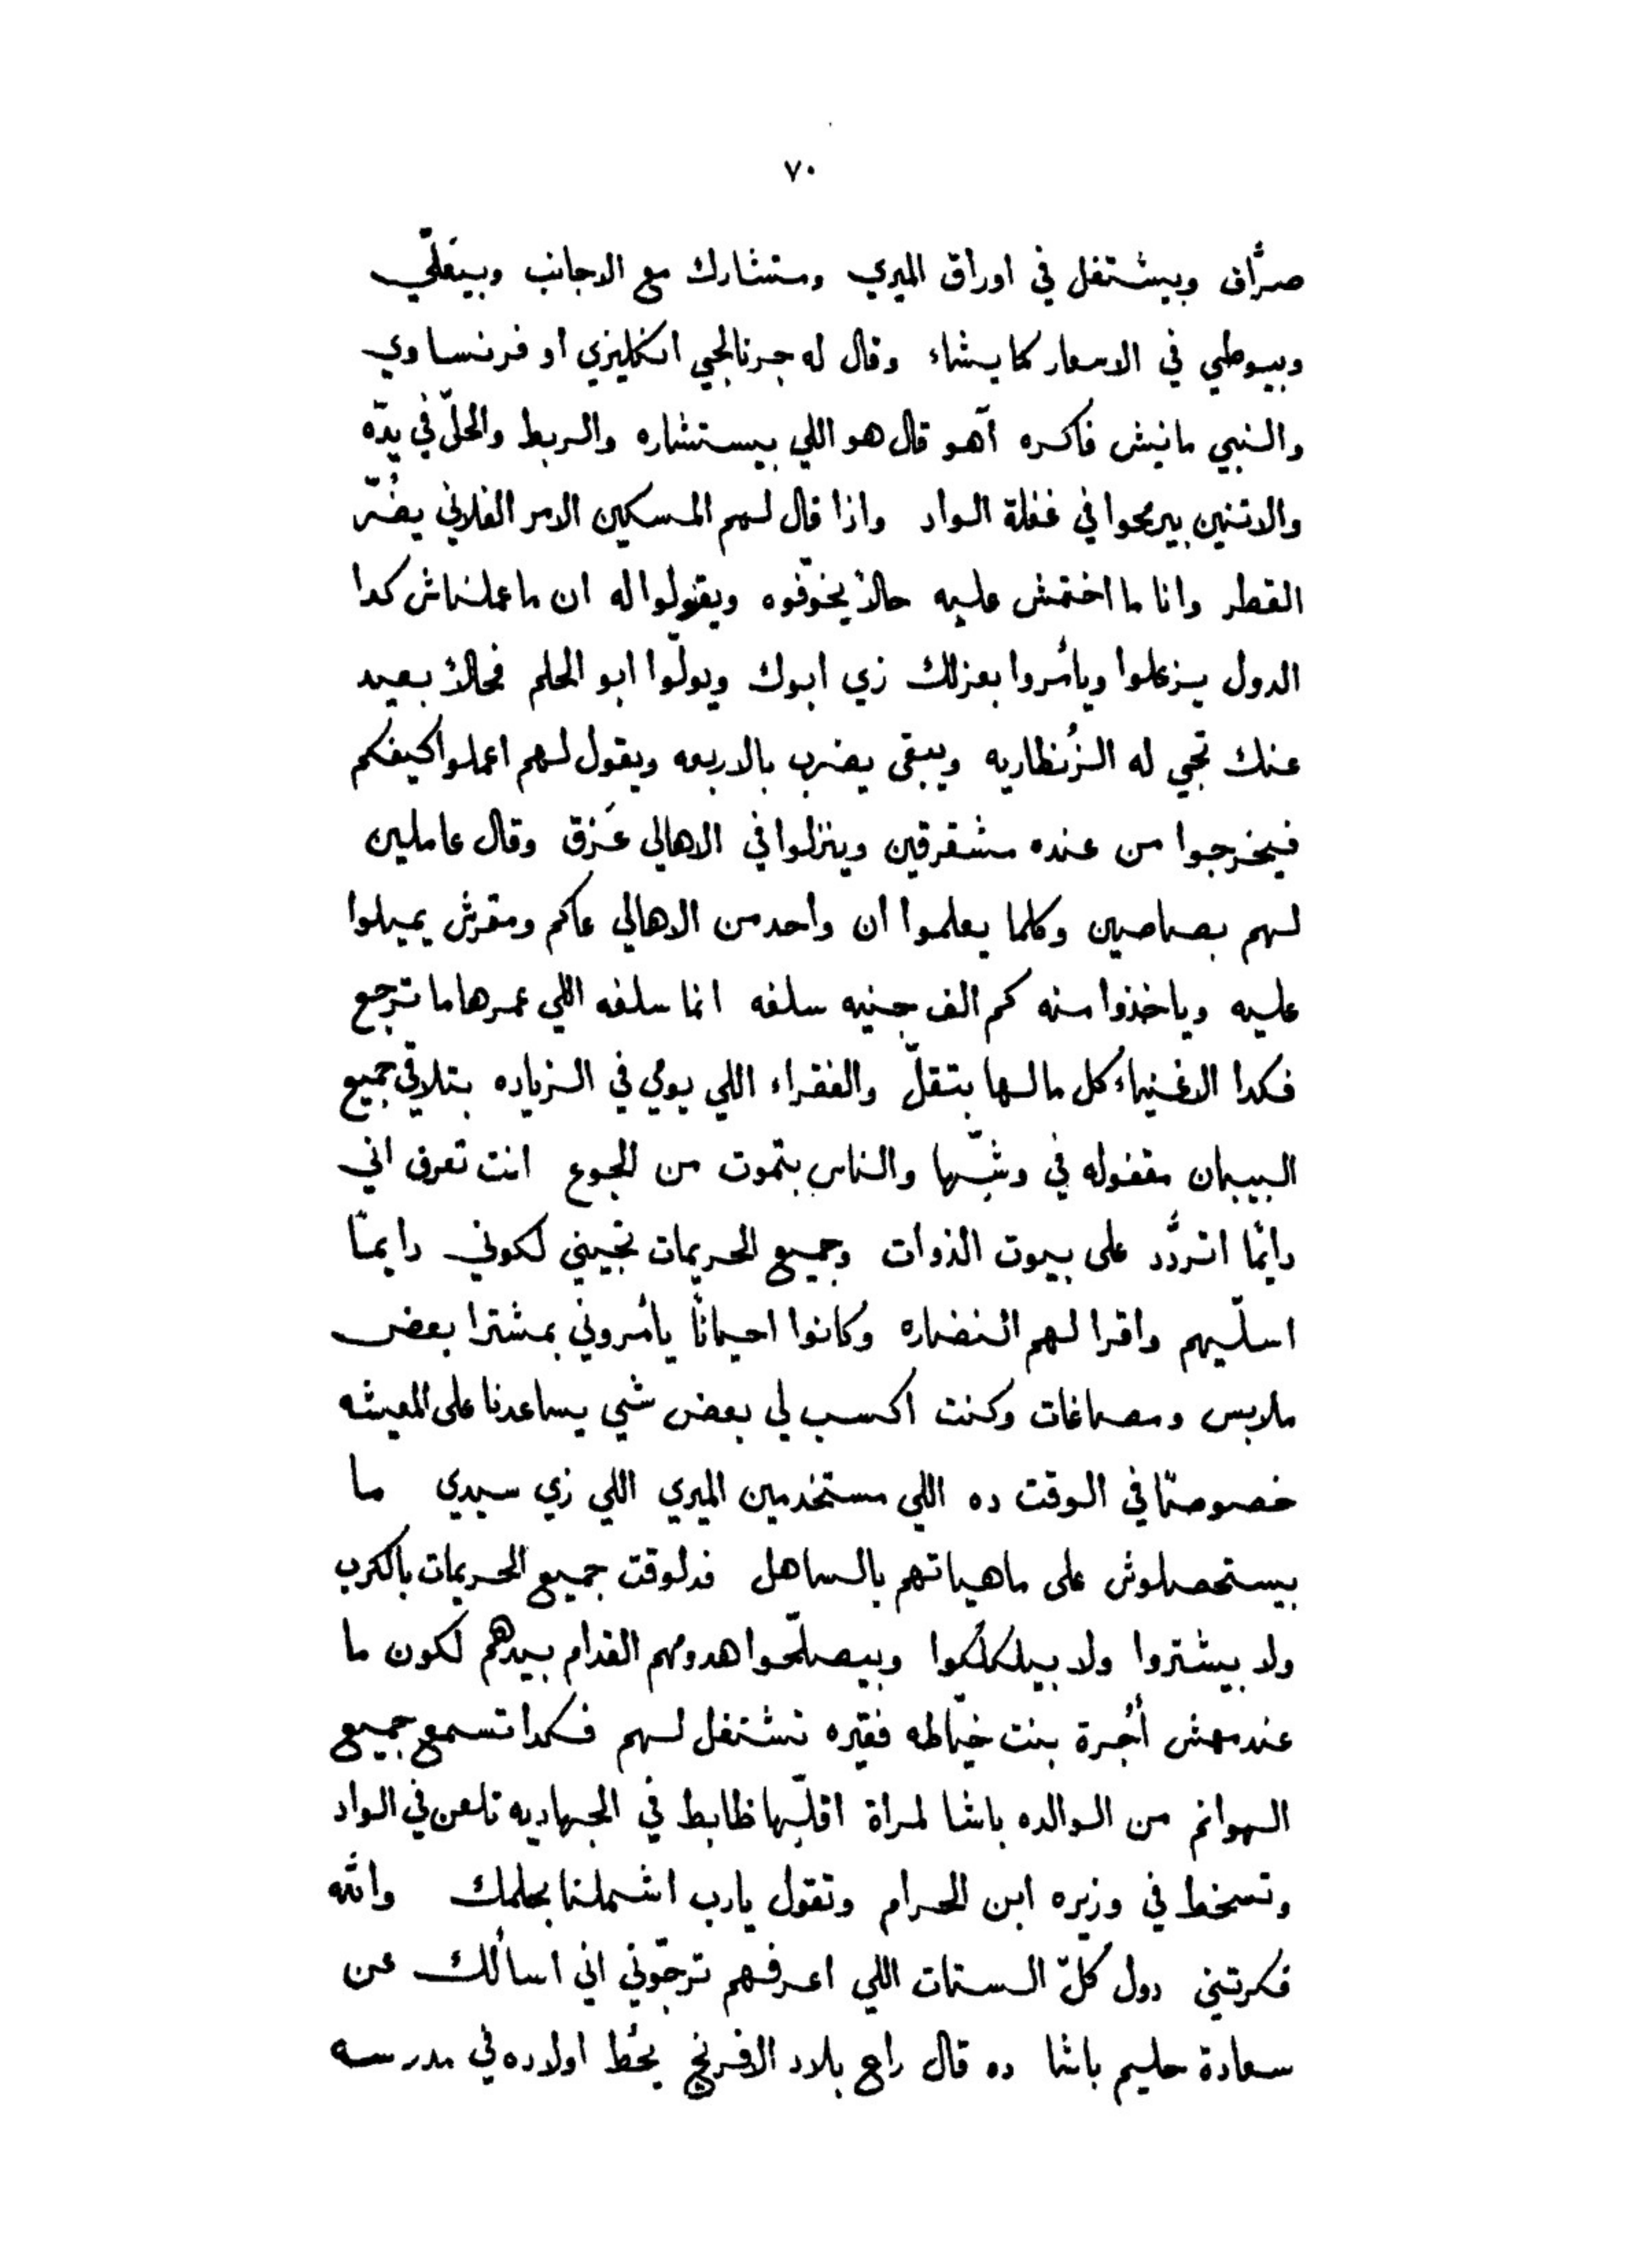 ٧٠
صرَّاف وبيشتغل في اوراق الميري ومتشارك مع الاجانب وبيعَلّي
وبيوطي في الاسعار كما يشاء وقال له جرنالجي انكليزي او فرنساوي
والنبي مانيش فاكره آهو قال هو اللي بيستشاره والربط والحلّ في يدّه
والاتنين بيرمحوا في غفلة الواد واذا قال لهم المسكين الامر الفلاني يضُرّ
القطر وانا ما اختمش عليه حالاً يخوّفوه ويقولوا له ان ما عملناش كدا
الدول يزعلوا ويأمروا بعزلك زي ابوك ويولّوا ابو الحلم فحالاً بعيد
عنك تجي له الزُنطاريه ويبقى يضرب بالاربعه ويقول لهم اعملوا كيفكم
فيخرجوا من عنده مشقرقين وينزلوا في الاهالي عَزق وقال عاملين
لهم بصاصين وكلما يعلموا ان واحد من الاهالي عاكم ومقرش يميلوا
عليه وياخذوا منه كم الف جنيه سلفه انما سلفه اللي عمرها ما ترجع
فكدا الاغنياء كل مالها بتقلّ والفقراء اللي يومي في الزياده بتلاقي جميع
البيبان مقفوله في وشّها والناس بتموت من الجوع انت تعرف اني
دايمًا اتردَّد على بيوت الذوات وجميع الحريمات تجيني لكوني دايمًا
اسلّيهم واقرا لهم النضاره وكانوا احيانًا يأمروني بمشترا بعض
ملابس ومصاغات وكنت اكسب لي بعض شي يساعدنا على المعيشه
خصوصًا في الوقت ده اللي مستخدمين الميري اللي زي سيدي ما
بيستحصلوش على ماهياتهم بالساهل فدلوقت جميع الحريمات بالكرب
ولا بيشتروا ولا بيلكلكوا وبيصلّحوا هدومهم القدام بيدهم لكون ما
عندهمش أُجرة بنت خيّاطه فقيره تشتغل لهم فكدا تسمع جميع
الهوانم من الوالده باشا لمراة اقلّها ظابط في الجهاديه تلعن في الواد
وتسخط في وزيره ابن الحرام وتقول يارب اشملنا بحلمك والله
فكرتيني دول كلّ الستات اللي اعرفهم ترجّوني اني اسألك عن
سعادة حليم باشا ده قال راح بلاد الافرنج يحُط اولاده في مدرسه